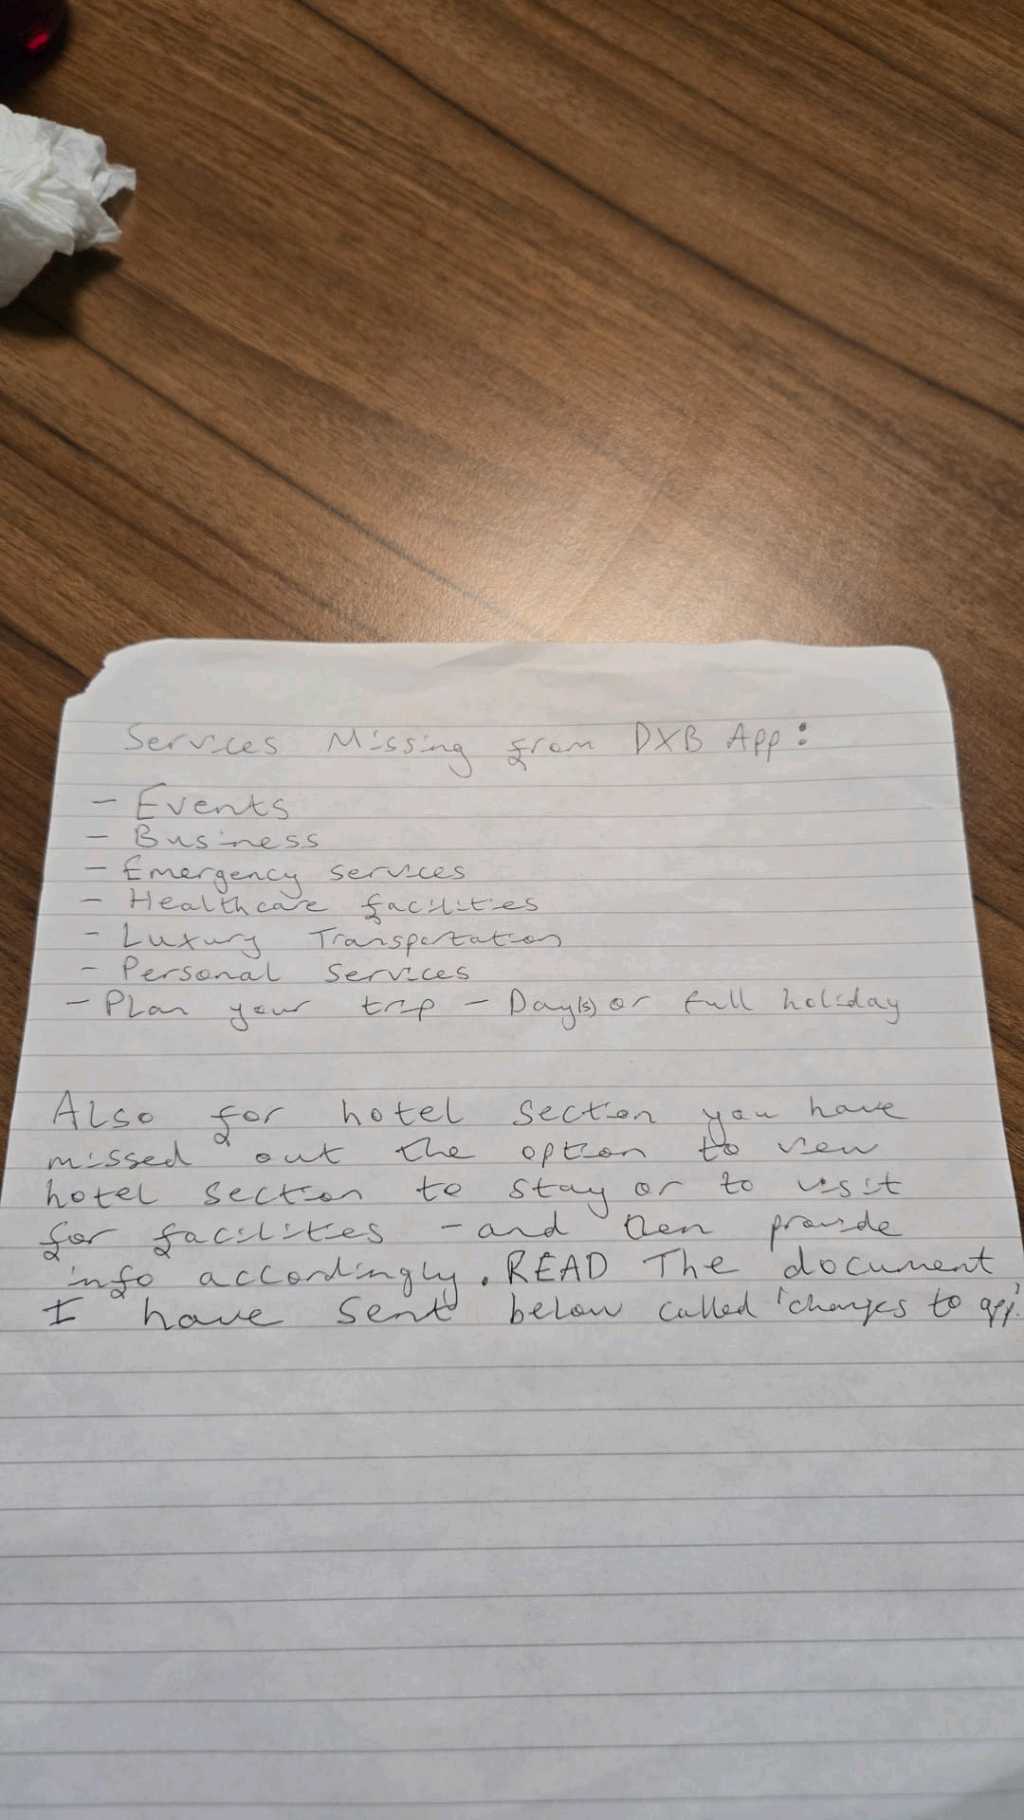 Services Missing from DXB App:
- Events
- Business
- Emergency services
- Healthcare facilities
- Luxury Transportation
- Personal Services
- Plan your trip - Day(s) or full holiday
Also for hotel section you have
missed out the option to view
hotel section to stay or to visit
for facilities - and then provide
info accordingly. READ The document
I have sent below called 'changes to app'.